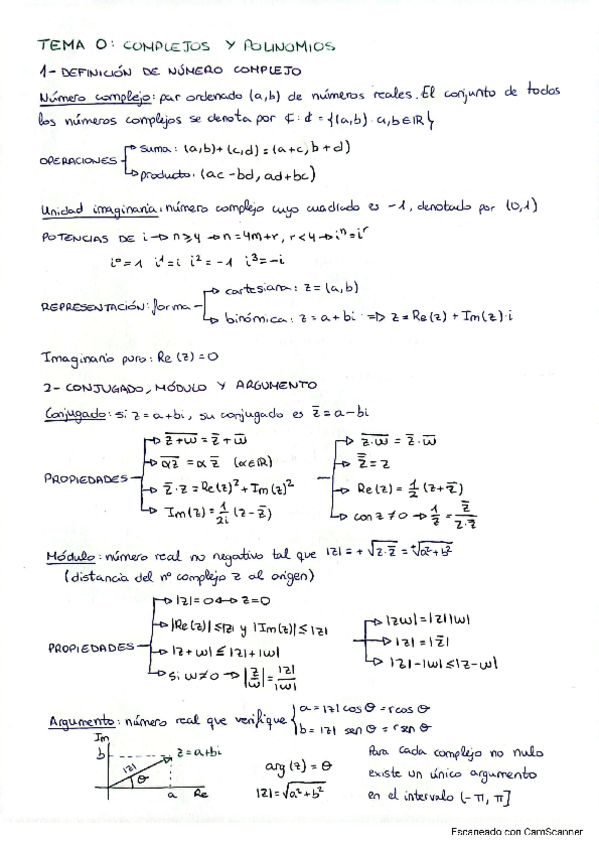 TEMA 0: COMPLEJOS Y POLINOMIOS
1- DEFINICIÓN DE NÚMERO COMPLEJO
Número complejo: par ordenado (a,b) de números reales. El conjunto de todos
los números complejos se denota por ℂ: ℂ = {(a,b) : a,b∈ℝ}
OPERACIONES
suma: (a,b)+(c,d)=(a+c, b+d)
producto: (ac-bd, ad+bc)
Unidad imaginaria: número complejo cuyo cuadrado es -1, denotado por (0,1)
POTENCIAS DE i → n≥4 → n=4m+r, r<4 → iⁿ=iʳ
i⁰=1 i¹=i i²=-1 i³=-i
REPRESENTACIÓN: forma
cartesiana: z=(a,b)
binómica: z=a+bi ⇒ z=Re(z)+Im(z)·i
Imaginario puro: Re(z)=0
2- CONJUGADO, MÓDULO Y ARGUMENTO
Conjugado: si z=a+bi, su conjugado es z̅=a-bi
PROPIEDADES
z̅+̅w̅ = z̅+w̅
α̅z̅ = α z̅ (α∈ℝ)
z̅·z = Re(z)²+Im(z)²
Im(z)=1/2i (z-z̅)
z̅·̅w̅ = z̅·w̅
z̅̅=z
Re(z)=1/2 (z+z̅)
con z≠0 → 1/z = z̅/z·z̅
Módulo: número real no negativo tal que |z|=+√z·z̅ = +√a²+b²
(distancia del nº complejo z al origen)
PROPIEDADES
|z|=0 ↔ z=0
|Re(z)|≤|z| y |Im(z)|≤|z|
|z+w|≤|z|+|w|
si w≠0 → |z/w|=|z|/|w|
|zw|=|z||w|
|z|=|z̅|
|z|-|w|≤|z-w|
Argumento: número real que verifique { a=|z|cos θ = r cos θ
b=|z| sen θ = r sen θ
Im
b
z=a+bi
|z|
θ
a
Re
arg(z)=θ
|z|=√a²+b²
Para cada complejo no nulo
existe un único argumento
en el intervalo (-π, π]
Escaneado con CamScanner